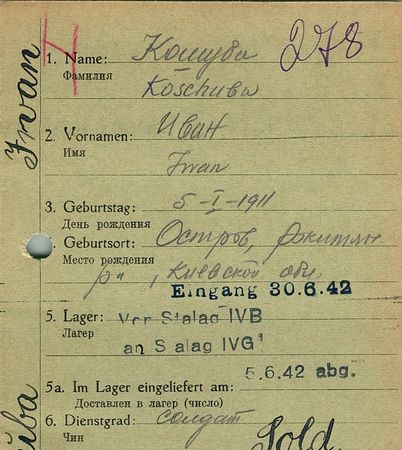 278
1. Name: Кошуба
Фамилия
Koschuba
2. Vornamen: Иван
Имя
Iwan
3. Geburtstag: 5-I-1911
День рождения
4. Geburtsort: Остров,
Место рождения
р-н, Киевской обл.
Eingang 30.6.42
5. Lager: Von Stalag IVB
Лагер
an Stalag IVG
5.6.42 abg.
5a. Im Lager eingeliefert am:
Доставлен в лагер (число)
6. Dienstgrad: солдат
Чин
Sold.
Iwan